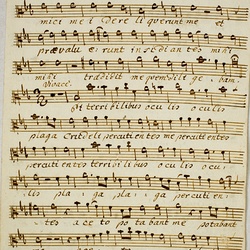 mici me i dere li querunt me et
prævalu e runt insedian tes mihi
mihi tradidit me
et terribilibus oculis oculis
plaga percutientes me percutientes
percutientes terribilibus oculis ocu
lis pla ga pla ga percutien
tes aceto po ta bant me potabant